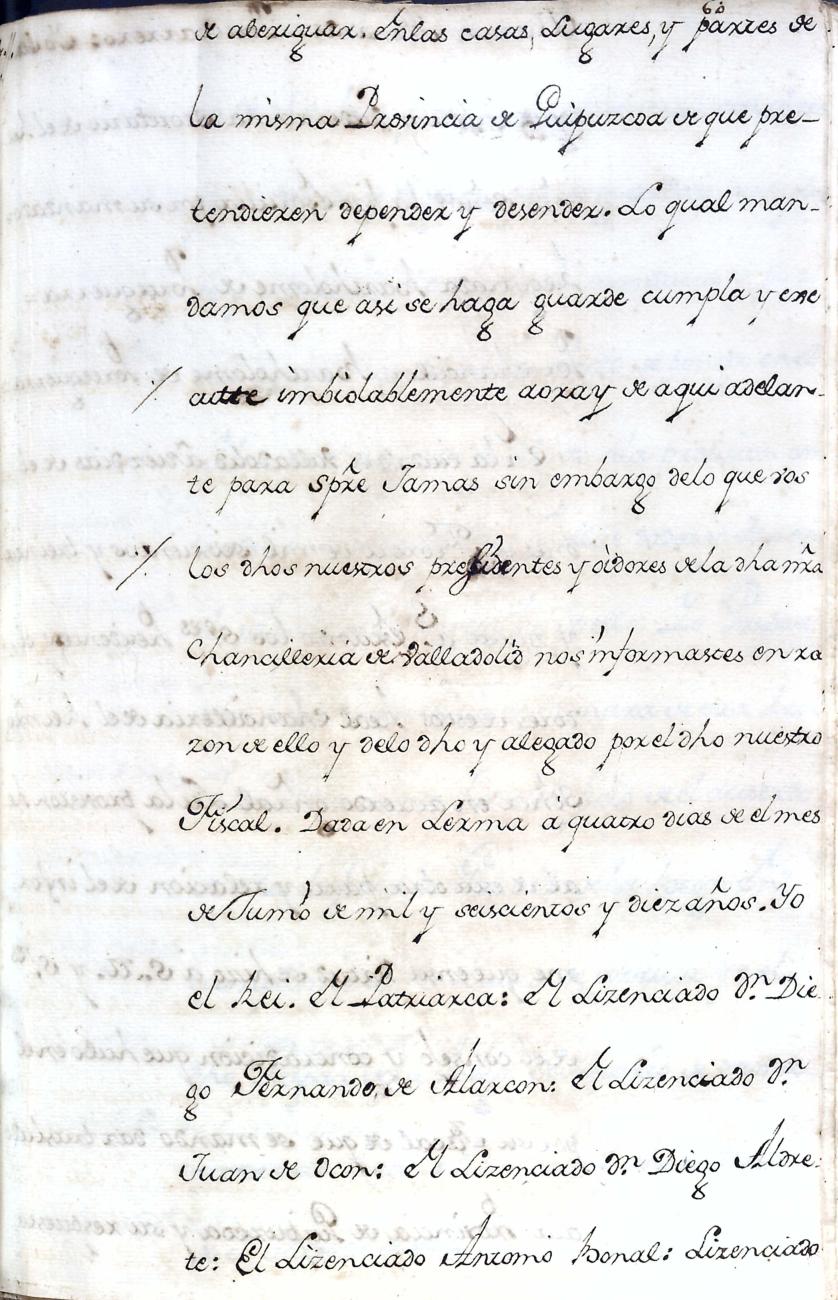 60
de aberiguar. En las casas, Lugares, y partes de
la misma Provincia de Guipuzcoa de que pre-
tendieren depender y desender. Lo qual man-
damos que asi se haga guarde cumpla y exe
cutte imbiolablemente aora y de aqui adelan-
te para Spre Jamas sin embargo de lo que vos
los dhos nuestros presidentes y oidores de la dha nra
Chancilleria de Valladolid nos informastes en ra
zon de ello y de lo dho y alegado por el dho nuestro
Fiscal. Dada en Lerma à quatro dias de el mes
de Junio de mil y seiscientos y diez años. Yo
el Rei. El Patriarca: El Lizenciado Dn Die
go Fernando de Alarcon: El Lizenciado Dn
Juan de Ocon: El Lizenciado Dn Diego Aldre
te: El Lizenciado Antonio Bonal: Lizenciado